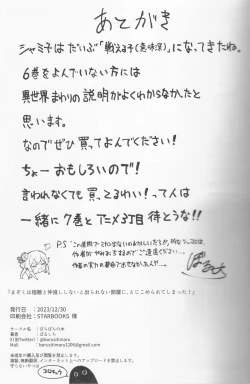 あとがき
シャミ子はだいぶ「戦える子(意味深)」になってきたね。
6巻をよんでいない方には
異世界まわりの説明がよくわからなかったと
思います。
なのでぜひ買ってよんでください!
ちょーおもしろいので!
言われなくても買ってるわい!って人は
一緒に7巻とアニメ3丁目待とうな!!
P.S
ぼるしち
『まぞくは宿敵と仲良ししないと出られない部屋に、とじこめられてしまった!』
発行日 : 2023/12/30
印刷会社 : STARBOOKS 様
サークル名 : ぼるぼるの本
著者 : ぼるしち
X(旧Twitter) : @borusitimaru
Mail : borusitimaru1205@gmail.com
未成年の購入及び閲覧を禁止します。
無断転載、無断複製、インターネット上へのアップロードを禁止します。